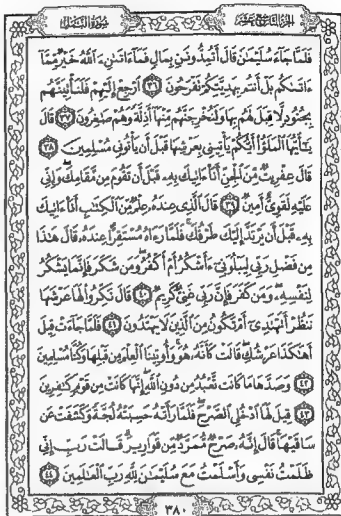 الجزء التاسع عشر سورة النمل
فَلَمَّا جَآءَ سُلَيْمَٰنَ قَالَ أَتُمِدُّونَنِ بِمَالٍ فَمَآ ءَاتَىٰنِۦَ ٱللَّهُ خَيْرٌ مِّمَّآ
ءَاتَىٰكُم بَلْ أَنتُم بِهَدِيَّتِكُمْ تَفْرَحُونَ ٣٦ ٱرْجِعْ إِلَيْهِمْ فَلَنَأْتِيَنَّهُم
بِجُنُودٍ لَّا قِبَلَ لَهُم بِهَا وَلَنُخْرِجَنَّهُم مِّنْهَآ أَذِلَّةً وَهُمْ صَٰغِرُونَ ٣٧ قَالَ
يَٰٓأَيُّهَا ٱلْمَلَؤُا۟ أَيُّكُمْ يَأْتِينِى بِعَرْشِهَا قَبْلَ أَن يَأْتُونِى مُسْلِمِينَ ٣٨
قَالَ عِفْرِيتٌ مِّنَ ٱلْجِنِّ أَنَا۠ ءَاتِيكَ بِهِۦ قَبْلَ أَن تَقُومَ مِن مَّقَامِكَ وَإِنِّى
عَلَيْهِ لَقَوِىٌّ أَمِينٌ ٣٩ قَالَ ٱلَّذِى عِندَهُۥ عِلْمٌ مِّنَ ٱلْكِتَٰبِ أَنَا۠ ءَاتِيكَ
بِهِۦ قَبْلَ أَن يَرْتَدَّ إِلَيْكَ طَرْفُكَ فَلَمَّا رَءَاهُ مُسْتَقِرًّا عِندَهُۥ قَالَ هَٰذَا
مِن فَضْلِ رَبِّى لِيَبْلُوَنِىٓ ءَأَشْكُرُ أَمْ أَكْفُرُ وَمَن شَكَرَ فَإِنَّمَا يَشْكُرُ
لِنَفْسِهِۦ وَمَن كَفَرَ فَإِنَّ رَبِّى غَنِىٌّ كَرِيمٌ ٤٠ قَالَ نَكِّرُوا۟ لَهَا عَرْشَهَا
نَنظُرْ أَتَهْتَدِىٓ أَمْ تَكُونُ مِنَ ٱلَّذِينَ لَا يَهْتَدُونَ ٤١ فَلَمَّا جَآءَتْ قِيلَ
أَهَٰكَذَا عَرْشُكِ قَالَتْ كَأَنَّهُۥ هُوَ وَأُوتِينَا ٱلْعِلْمَ مِن قَبْلِهَا وَكُنَّا مُسْلِمِينَ
٤٢ وَصَدَّهَا مَا كَانَت تَّعْبُدُ مِن دُونِ ٱللَّهِ إِنَّهَا كَانَتْ مِن قَوْمٍ كَٰفِرِينَ
٤٣ قِيلَ لَهَا ٱدْخُلِى ٱلصَّرْحَ فَلَمَّا رَأَتْهُ حَسِبَتْهُ لُجَّةً وَكَشَفَتْ عَن
سَاقَيْهَا قَالَ إِنَّهُۥ صَرْحٌ مُّمَرَّدٌ مِّن قَوَارِيرَ قَالَتْ رَبِّ إِنِّى
ظَلَمْتُ نَفْسِى وَأَسْلَمْتُ مَعَ سُلَيْمَٰنَ لِلَّهِ رَبِّ ٱلْعَٰلَمِينَ ٤٤
٣٨٠